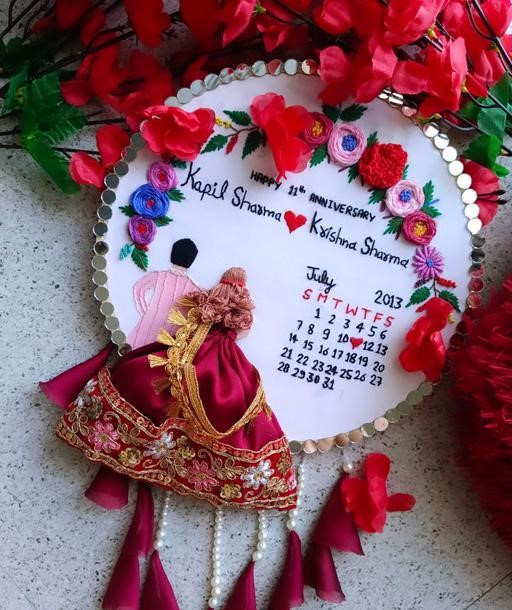 HAPPY 11th ANNIVERSARY
Kapil Sharma ❤ Krishna Sharma
July 2013
S M T W T F S
1 2 3 4 5 6
7 8 9 10 ❤ 12 13
14 15 16 17 18 19 20
21 22 23 24 25 26 27
28 29 30 31